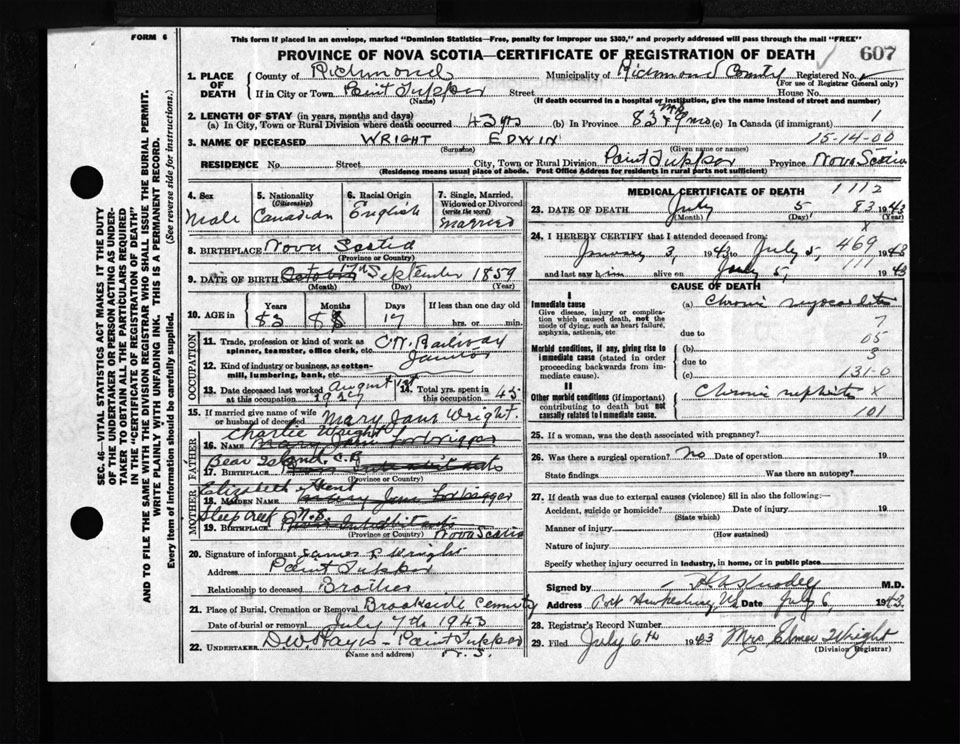 FORM 6
This form if placed in an envelope, marked "Dominion Statistics—Free, penalty for improper use $300," and properly addressed will pass through the mail "FREE"
PROVINCE OF NOVA SCOTIA—CERTIFICATE OF REGISTRATION OF DEATH
607
1. PLACE OF DEATH
County of Richmond Municipality of Richmond County Registered No.
(For use of Registrar General only)
If in City or Town Point Tupper Street House No.
(Name) (If death occurred in a hospital or institution, give the name instead of street and number)
2. LENGTH OF STAY (in years, months and days)
(a) In City, Town or Rural Division where death occurred 43 yrs (b) In Province 83 & 9 mo (c) In Canada (if immigrant) 1
15-14-00
3. NAME OF DECEASED WRIGHT EDWIN
(Surname) (Given name or names)
RESIDENCE No. Street City, Town or Rural Division Point Tupper Province Nova Scotia
(Residence means usual place of abode. Post Office Address for residents in rural parts not sufficient)
4. Sex
Male
5. Nationality
(Citizenship)
Canadian
6. Racial Origin
English
7. Single, Married, Widowed or Divorced
(write the word)
Married
8. BIRTHPLACE Nova Scotia
(Province or Country)
9. DATE OF BIRTH October 17th September 1859
(Month) (Day) (Year)
10. AGE in
Years Months Days If less than one day old
83 8 17 hrs. or min.
OCCUPATION
11. Trade, profession or kind of work as spinner, teamster, office clerk, etc. C.N. Railway
12. Kind of industry or business, as cotton-mill, lumbering, bank, etc. Janitor
13. Date deceased last worked at this occupation August 1st 1927
14. Total yrs. spent in this occupation 45
15. If married give name of wife or husband of deceased Mary Jane Wright
FATHER
Charlie Wright
16. NAME
Bear Island, C.B.
17. BIRTHPLACE
(Province or Country)
MOTHER
Elizabeth Hent
18. MAIDEN NAME
Steep Creek N.S.
19. BIRTHPLACE Nova Scotia
(Province or Country)
20. Signature of informant James P Wright
Address Point Tupper
Relationship to deceased Brother
21. Place of Burial, Cremation or Removal Brookside Cemetery
Date of burial or removal July 7th 1943
22. UNDERTAKER D.W. Hayes - Point Tupper
(Name and address) N.S.
MEDICAL CERTIFICATE OF DEATH
1112
23. DATE OF DEATH July 5, 83 1943
(Month) (Day) (Year)
24. I HEREBY CERTIFY that I attended deceased from: x
January 3, 1943 to July 5, 469 1943
and last saw him alive on July 5, 111 1943
CAUSE OF DEATH
I
Immediate cause
Give disease, injury or complication which caused death, not the mode of dying, such as heart failure, asphyxia, asthenia, etc
(a) Chronic myocarditis
7
due to 05
Morbid conditions, if any, giving rise to immediate cause (stated in order proceeding backwards from immediate cause).
(b) 3
due to
(c) 131-0
II
Other morbid conditions (if important) contributing to death but not causally related to immediate cause.
Chronic nephritis x
101
25. If a woman, was the death associated with pregnancy?
26. Was there a surgical operation? No Date of operation 19
State findings Was there an autopsy?
27. If death was due to external causes (violence) fill in also the following:—
Accident, suicide or homicide? Date of injury 19
(State which)
Manner of injury
(How sustained)
Nature of injury
Specify whether injury occurred in Industry, in home, or in public place
Signed by M.D.
Address Port Hawkesbury, NS Date July 6, 1943.
28. Registrar's Record Number
29. Filed July 6th 1943 Mrs Elmer Wright
(Division Registrar)
SEC. 46—VITAL STATISTICS ACT MAKES IT THE DUTY
OF THE UNDERTAKER OR PERSON ACTING AS UNDER-
TAKER TO OBTAIN ALL THE PARTICULARS REQUIRED
IN THE "CERTIFICATE OF REGISTRATION OF DEATH"
AND TO FILE THE SAME WITH THE DIVISION REGISTRAR WHO SHALL ISSUE THE BURIAL PERMIT.
WRITE PLAINLY WITH UNFADING INK. THIS IS A PERMANENT RECORD.
Every item of Information should be carefully supplied. (See reverse side for instructions.)